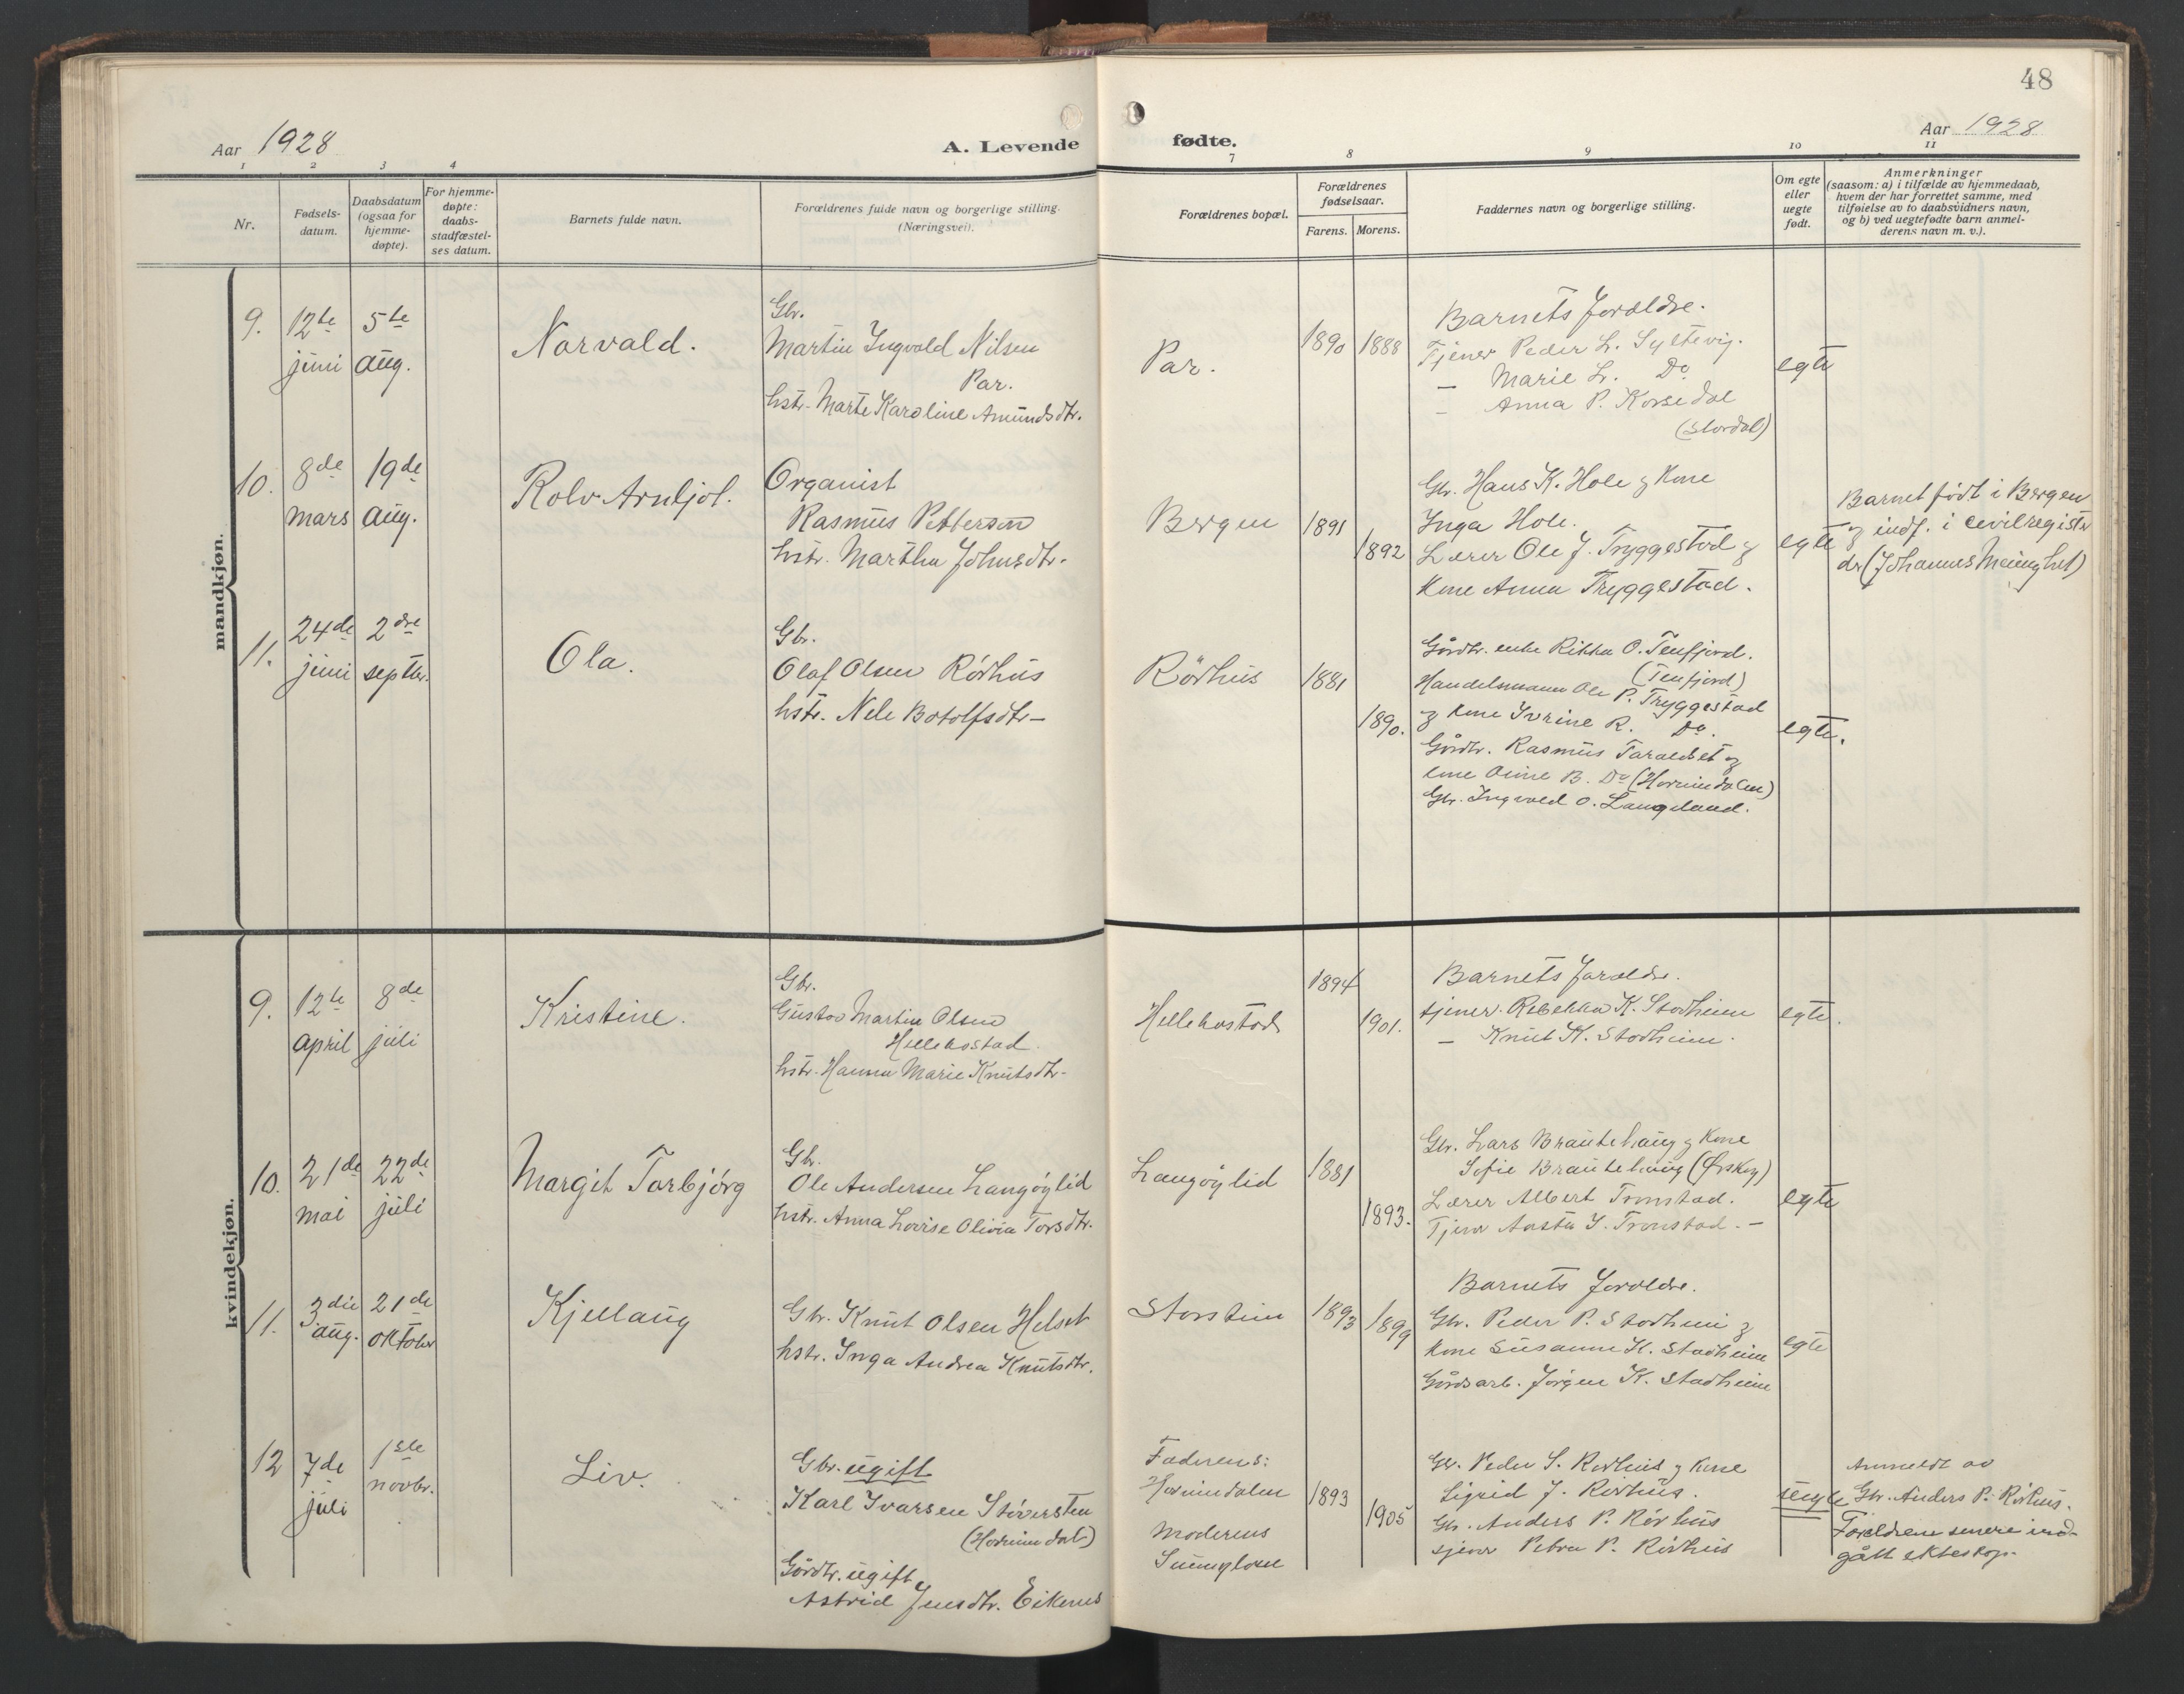 48
Aar 1928
A. Levende fødte.
Aar 1928
1 2 3 4 7 8 9 10 11
Nr.
Fødsels-
datum.
Daabsdatum
(ogsaa for
hjemme-
døpte).
For hjemme-
døpte:
daabs-
stadfæstel-
ses datum.
Barnets fulde navn.
Forældrenes fulde navn og borgerlige stilling.
(Næringsvei).
Forældrenes bopæl.
Forældrenes
fødselsaar.
Farens. Morens.
Faddernes navn og borgerlige stilling.
Om egte
eller
uegte
født.
Anmerkninger
(saasom: a) i tilfælde av hjemmedaab,
hvem der har forrettet samme, med
tilføielse av to daabsvidners navn,
og b) ved uegtefødte barn anmel-
derens navn m. v.).
mandkjøn.
9.
12te
juni
5te
aug.
Norvald.
Gbr.
Martin Ingvald Nilsen
Par.
hstr. Marte Karoline Amundsdtr.
Par.
1890 1888
Barnets foreldre.
Tjener Peder L. Syltevig.
— Marie L. Do
— Anna P. Korsedal
(Stordal)
egte
10.
8de
mars
19de
aug.
Rolv Arnljot.
Organist
Rasmus Pettersen
hstr. Martha Johnsdtr.
Bergen
1891
1892
Gbr. Hans K. Hole & kone
Inga Hole.
Lærer Ole J. Tryggestad &
kone Anna Tryggestad.
egte
Barnet født i Bergen
& indf. i civilregister
der (Johannes
11.
24de
juni
2dre
septbr.
Ola.
Gbr.
Olaf Olsen Rørhus
hstr. Nele Botolfsdtr.
Rørhus
1881
1890.
Gårdbr. enke Rikka O. Tenfjord.
(Tenfjord)
Handelsmann Ole P. Tryggestad
& kone Ivrine R. Do.
Gårdbr. Rasmus Taraldset &
kone B. Do (Hornindalen)
Gbr. Ingvald O. Langeland.
egte.
kvindekjøn.
9.
12te
april
8de
juli
Kristine.
Gbr.
Gustav Martin Olsen
Hellebostad.
hstr. Hanna Marie Knutsdtr.
Hellebostad
1894
1901.
Barnets foreldre.
tjener. Rebekka K. Stadheim
— Knut K. Stadheim.
egte.
10.
21de
mai
22de
juli
Margit Torbjørg
Gbr.
Ole Andersen Langøylid
hstr. Anna Lovise Olivia Torsdtr.
Langøylid
1881
1893.
Gbr. Lars Brautehaug & kone
Sofie Brautehaug (Ørskog)
Lærer Albert Tronstad.
Tjener Aasta J. Tronstad. —
egte
11.
3die
aug.
21de
oktober
Kjellaug
Gbr. Knut Olsen Helset
hstr. Inga Andrea Knutsdtr.
Storstein
1893 1899
Barnets foreldre.
Gbr. Peder P. Stadheim &
kone Susanne K. Stadheim
Gårdsarb. Jørgen K. Stadheim
egte
12
7de
juli
1ste
novbr.
Liv.
Gbr. ugift
Karl Ivarsen Støversten
(Hornindal)
Gårdbr. ugift
Astrid Jensdtr. Eikenes
Faderens:
Hornindalen
Moderens
1893
1905
Gbr. Peder S. Rørhus & kone
Sigrid J. Rørhus.
Gbr. Anders P. Rørhus
tjener Petra P. Rørhus
uegte
Anmeldt av
Gbr. Anders P. Rørhus.
Foreldrene senere ind-
gått ekteskap.